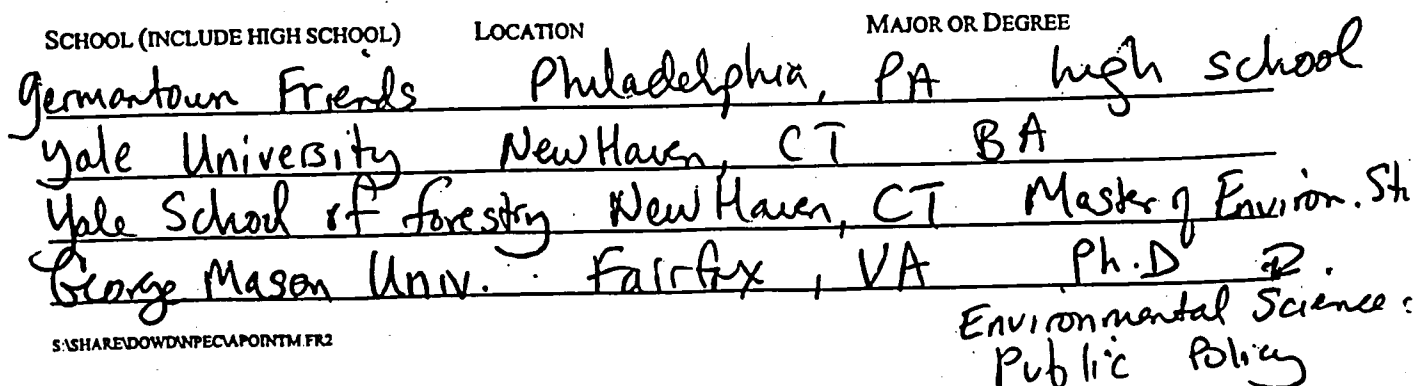 SCHOOL (INCLUDE HIGH SCHOOL) LOCATION MAJOR OR DEGREE
Germantown Friends Philadelphia, PA high school
Yale University New Haven, CT BA
Yale School of forestry New Haven, CT Master of Environ. St
George Mason Univ. Fairfax, VA Ph.D
Environmental Science :
Public Policy
S:\SHARE\DOWD\NPEC\APOINTM.FR2